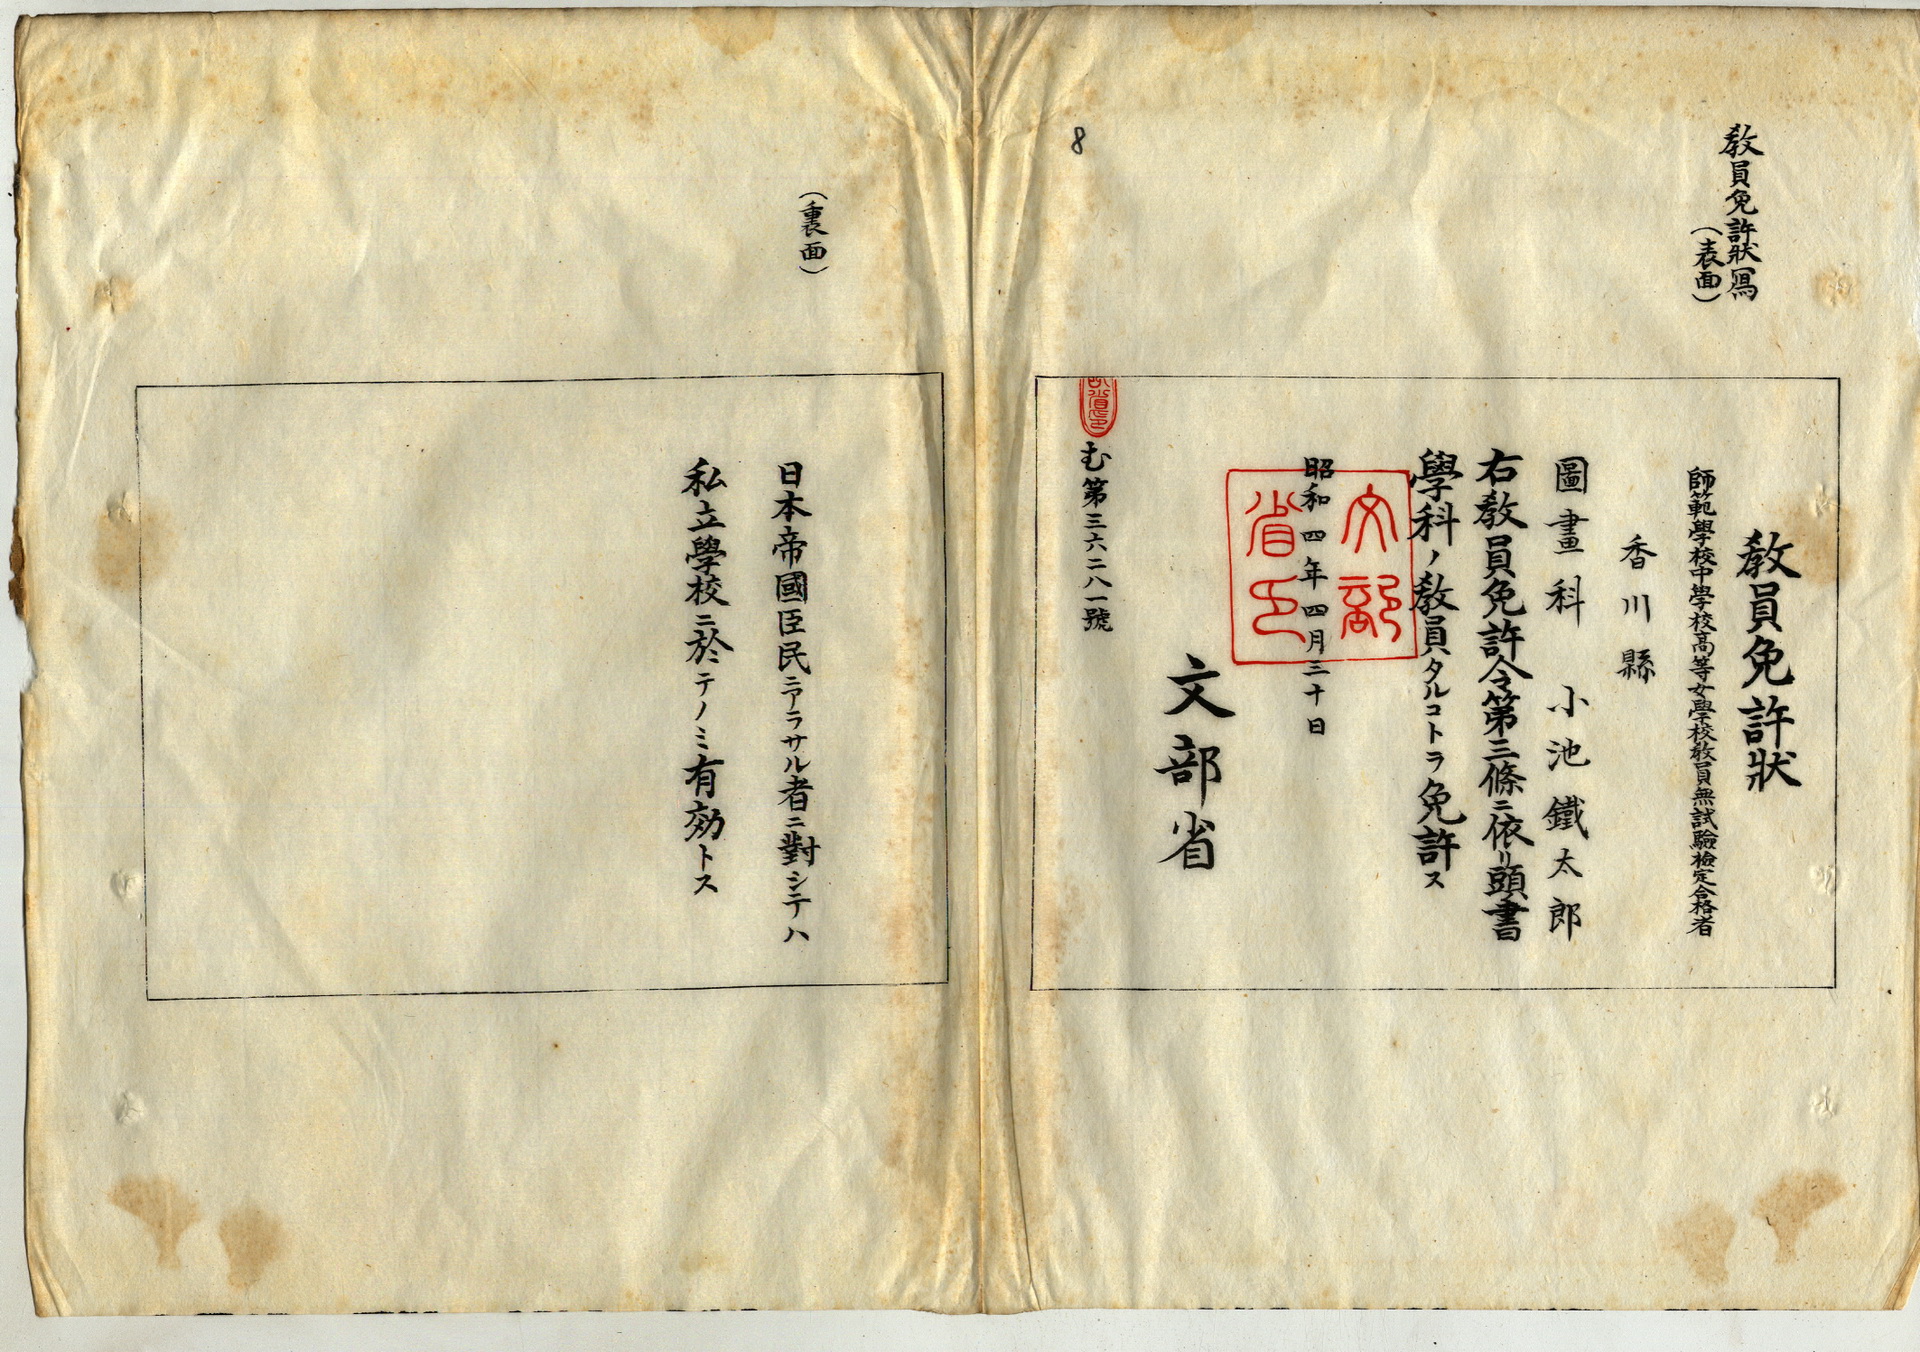 教員免許狀寫
（表面）
教員免許狀
師範學校中學校高等女學校教員無試驗檢定合格者
香川縣
圖畫科　小池鐵太郎
右教員免許令第三條ニ依リ頭書
學科ノ教員タルコトヲ免許ス
昭和四年四月三十日
文部省
文部省印
む第三六二八一號
8
（裏面）
日本帝國臣民ニアラサル者ニ對シテハ
私立學校ニ於テノミ有効トス